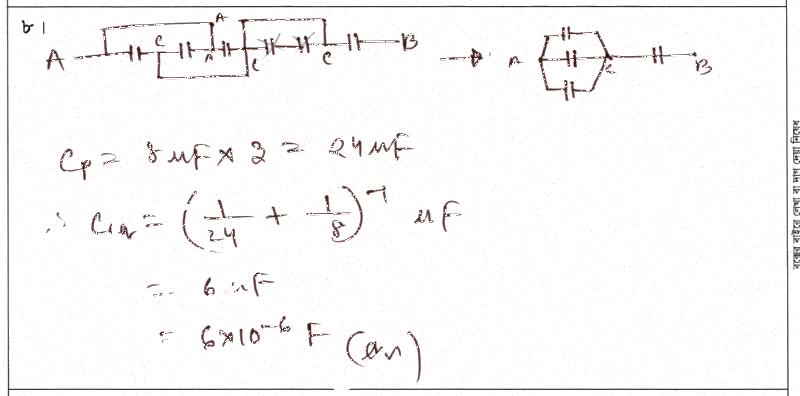 ৮।
A C A A C C B → A C B
Cp = 8 μF × 3 = 24 μF
∴ Ceq = (1/24 + 1/8)⁻¹ μF
= 6 μF
= 6×10⁻⁶ F (an)
বক্সের বাইরে লেখা বা দাগ দেয়া নিষেধ